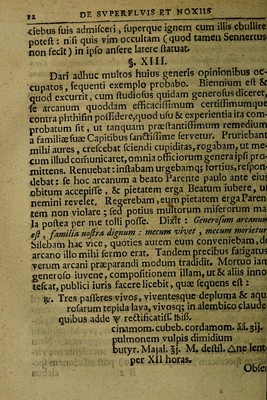 22 DE SUPERFLUIS ET NOXIIS
ciebus suis admisceri, superque ignem cum illis ebullire
potest: nisi quis vim occultam (quod tamen Sennertus
non fecit) in ipso ansere latere statuat.
§. XIII.
Dari adhuc multos huius generis opinionibus oc-
cupatos, sequenti exemplo probabo. Biennium est &
quod excurrit, cum studiosus quidam generosus diceret,
se arcanum quoddam efficacissimum certissimumque
contra phthisin possidere, quod usu & experientia ita com-
probatum sit, ut tanquam præstantissimum remedium
a familiæ suæ Capitibus sanctissime servetur. Pruriebant
mihi aures, crescebat sciendi cupiditas, rogabam, ut me-
cum illud communicaret, omnia officiorum genera ipsi pro-
mittens. Renuebat: instabam urgebamq; fortius, respon-
debat: se hoc arcanum a beato Parente paulo ante eius
obitum accepisse, & pietatem erga Beatum iubere, ut
nemini revelet. Regerebam, eum pietatem erga Paren-
tem non violare; sed potius multorum miserorum ma-
la postea per me tolli posse. Dixit: Generosum arcanum
est, familia nostra dignum: mecum vivet, mecum morietur
Silebam hac vice, quoties autem eum conveniebam, de
arcano illo mihi sermo erat. Tandem precibus fatigatus
verum arcani præparandi modum tradidit. Mortuo ian
generoso iuvene, compositionem illam, ut & aliis inno-
tescat, publici iuris facere licebit, quæ sequens est:
℞. Tres passeres vivos, viventesque depluma & aqu
rosarum tepida lava, vivosq; in alembico claude
quibus adde rectificatiss. ℔iß.
cinamom. cubeb. cordamom. āā. ʒij.
pulmonem vulpis dimidium
butyr. Majal. ℥j. M. destil. △ne lent
per XII horas.
Obser